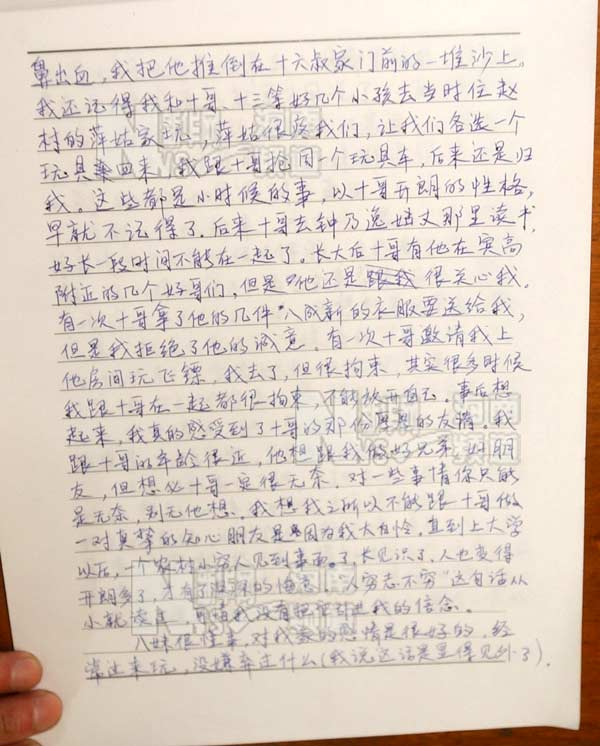 鼻出血，我把他推倒在十六叔家门前的一堆沙上。
我还记得我和十哥、十三等好几个小孩去当时位赵
村的萍姑家玩，萍姑很疼我们，让我们各选一个
玩具回来，我跟十哥抢同一个玩具车，后来还是归
我。这些都是小时候的事，以十哥开朗的性格，
早就不记得了。后来十哥去钟乃逸姑丈那里读书，
好长一段时间不能在一起了。长大后十哥有他在实高
附近的几个好哥们，但是他还是跟我很关心我。
有一次十哥拿了他的几件八成新的衣服要送给我，
但是我拒绝了他的诚意。有一次十哥邀请我上
他房间玩飞镖，我去了，但很拘束，其实很多时候
我跟十哥在一起都很拘束，不能放开自己。事后想
起来，我真的感受到了十哥的那份厚厚的友谊。我
跟十哥的年龄很近，他想跟我做好兄弟、好朋
友，但想必十哥一定很无奈，对一些事情你只能
是无奈，别无他想。我想我之所以不能跟十哥做
一对真挚的知心朋友是因为我太自怜，直到上大学
以后，一个农村小穷人见到事面了，长见识了，人也变得
开朗多了，才有了深深的悔意。“人穷志不穷”这句话从
小就读，可惜我没有把它引进我的信念。
八妹很懂事，对我家的感情是很好的，经
常过来玩，没嫌弃过什么（我说这话是显得见外了）。